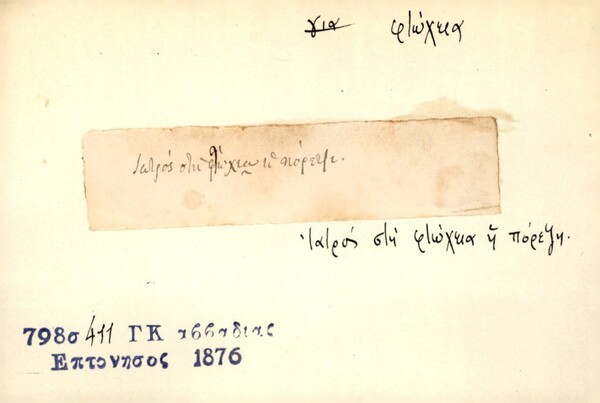 για φτώχεια
Ιατρός στη φτώχεια ἡ πόρεξι.
Ἰατρός στη φτώχεια ἡ πόρεξη.
798σ 411 ΓΚ αββαδιας
Επτονησος 1876